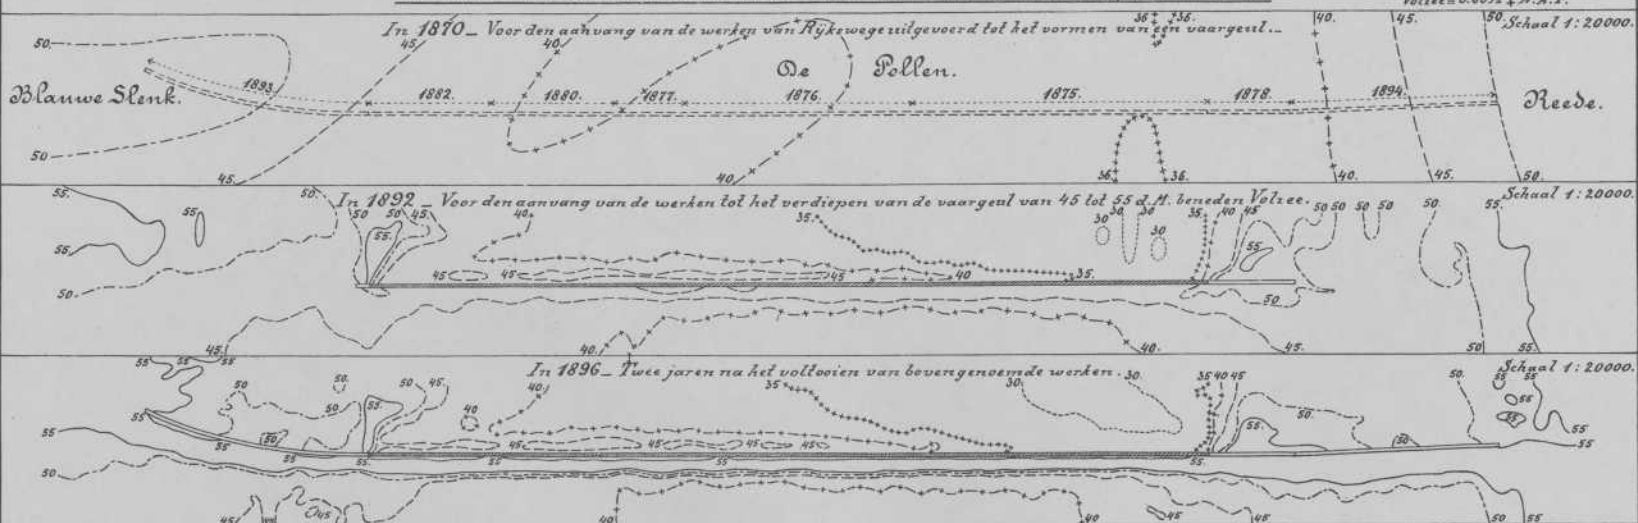 In 1870_ Voor den aanvang van de werken van Rijkswege uitgevoerd tot het vormen van een vaargeul._ Schaal 1:20000.
50. 45. 40. 36. 36. 40. 45. 50.
De Pollen.
Blauwe Slenk. 1893. 1882. 1880. 1877. 1876. 1875. 1878. 1894. Reede.
50 45. 40. 36. 36. 40. 45. 50.
In 1892_ Voor den aanvang van de werken tot het verdiepen van de vaargeul van 45 tot 55 d.M. beneden Volzee. Schaal 1:20000.
55. 55 50. 50 50 45. 40. 35. 30 30 30 35. 40 45 50 50 50 50 50. 55.
55. 55. 30 55.
45 45 45 40 35.
50. 50.
45. 40. 40. 45. 50 55.
In 1896_ Twee jaren na het voltooien van bovengenoemde werken. Schaal 1:20000.
55 55 55 50 50. 50 45. 40 35 30. 30. 35 40 45 50. 55 55
50 55. 40 50. 55 55
55 50 45 45 45 45 55. 50 55 55
55 55 55. 50 55 55.
50
45 45 40 40 45 45 50 55